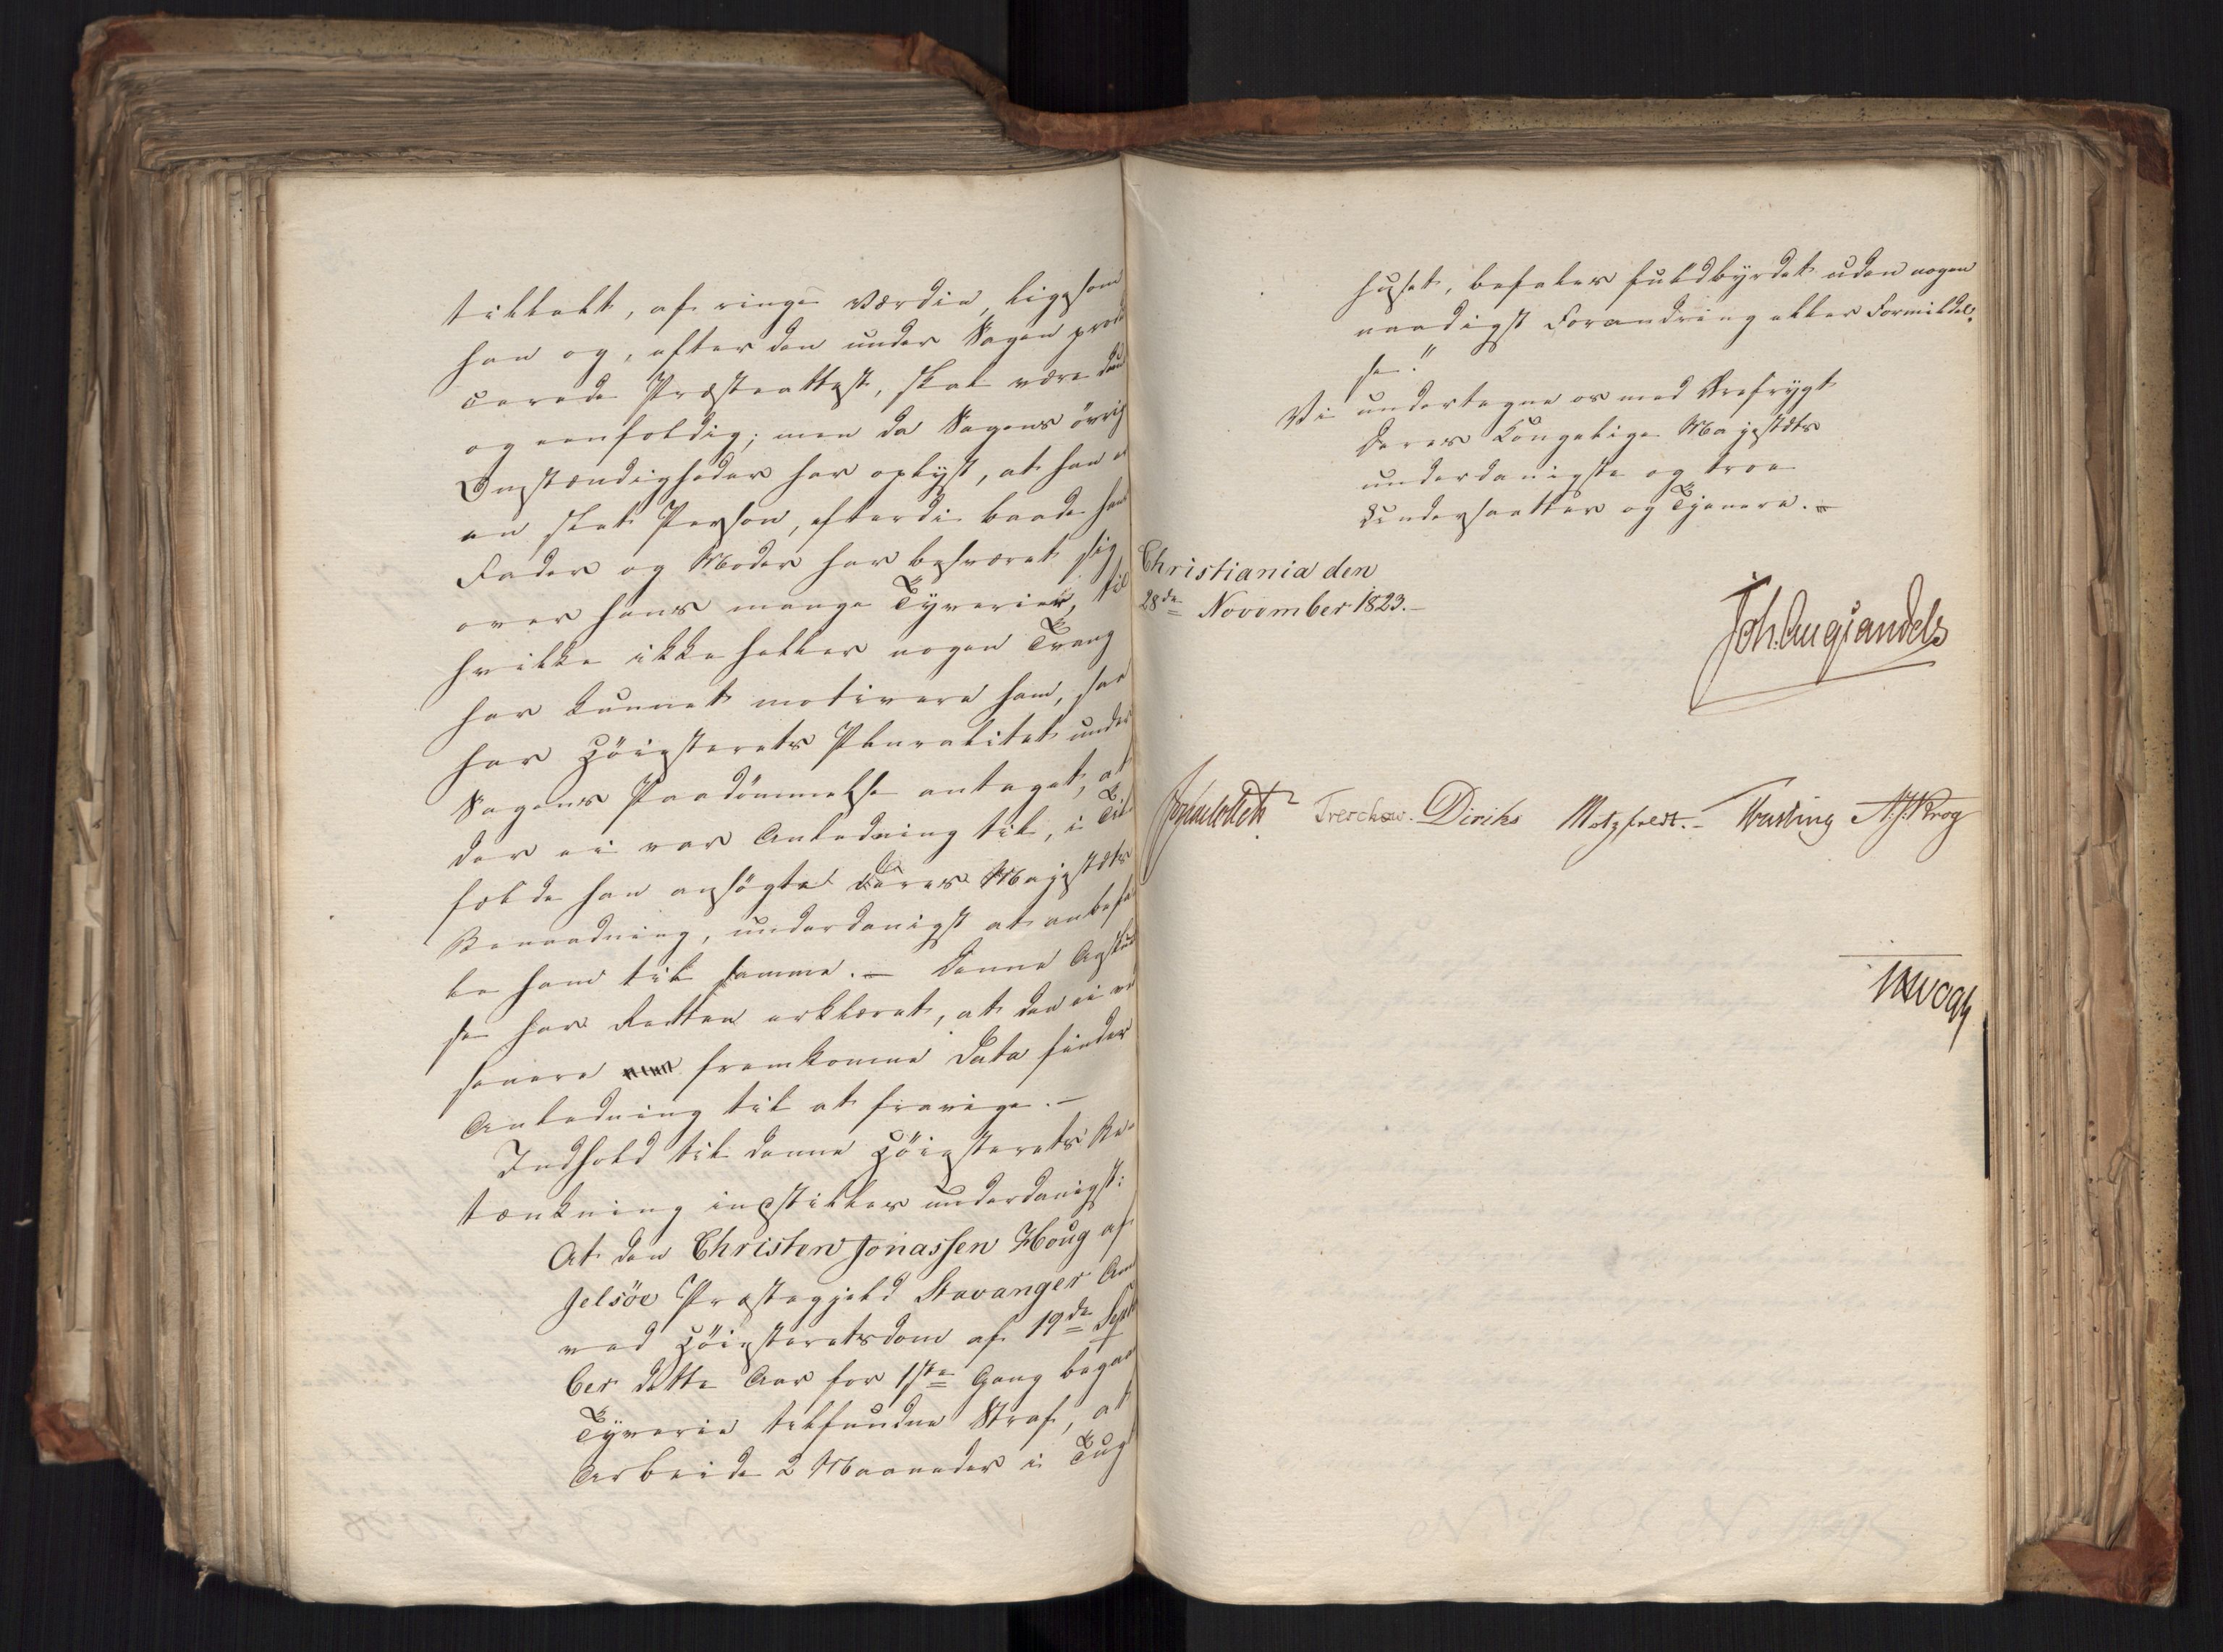 tillalt, af ringe Værdie, ligesom
han og, efter den under Sagen prod
cerede Præsteattest, skal være dum
og eenfoldig; men da Sagens övrig
Omstændigheder har oplyst, at han e
en slet Person, efterdi baade hans
Fader og Moder har besværet sig
over hans mange Tyverier, til
hvilke ikke heller nogen Trang
har kunnet motivere ham, saa
har Höiesterets Pluralitet under
Sagens Paadömmelse antaget, at
der ei var Anledning til, i Til
fælde han ansögte Deres Majestæts
Benaadning, underdanigst at anbefa
le ham til samme. — Denne Anskuel
se har Retten erklæret, at den ei ved
senere fremkomne Data finder
Anledning til at fravige. —
Indhold til denne Höiesterets Be-
tænkning indstilles underdanigst:
At den Christen Jonassen Houg af
Jelsöe Præstegjeld Stavanger Amt
ved Höiesteretsdom af 19de Septem
ber dette Aar for 1ste Gang begaaet
Tyverie tilfundne Straf, at
Arbeide 2 Maaneder i Tugt
huset, befales fuldbyrdet uden nogen
naadigst Forandring eller Formildel-
se."
Vi undertegne os med Ærefrygt
Deres Kongelige Majestæts
underdanigste og troe
Undersaatter og Tjenere. —
Christiania den
28de November 1823. —
Joh. Aug. Sandels
Jonas Collett Treschow. Diriks Motzfeldt. — Fasting A. J. Krog
Vogt